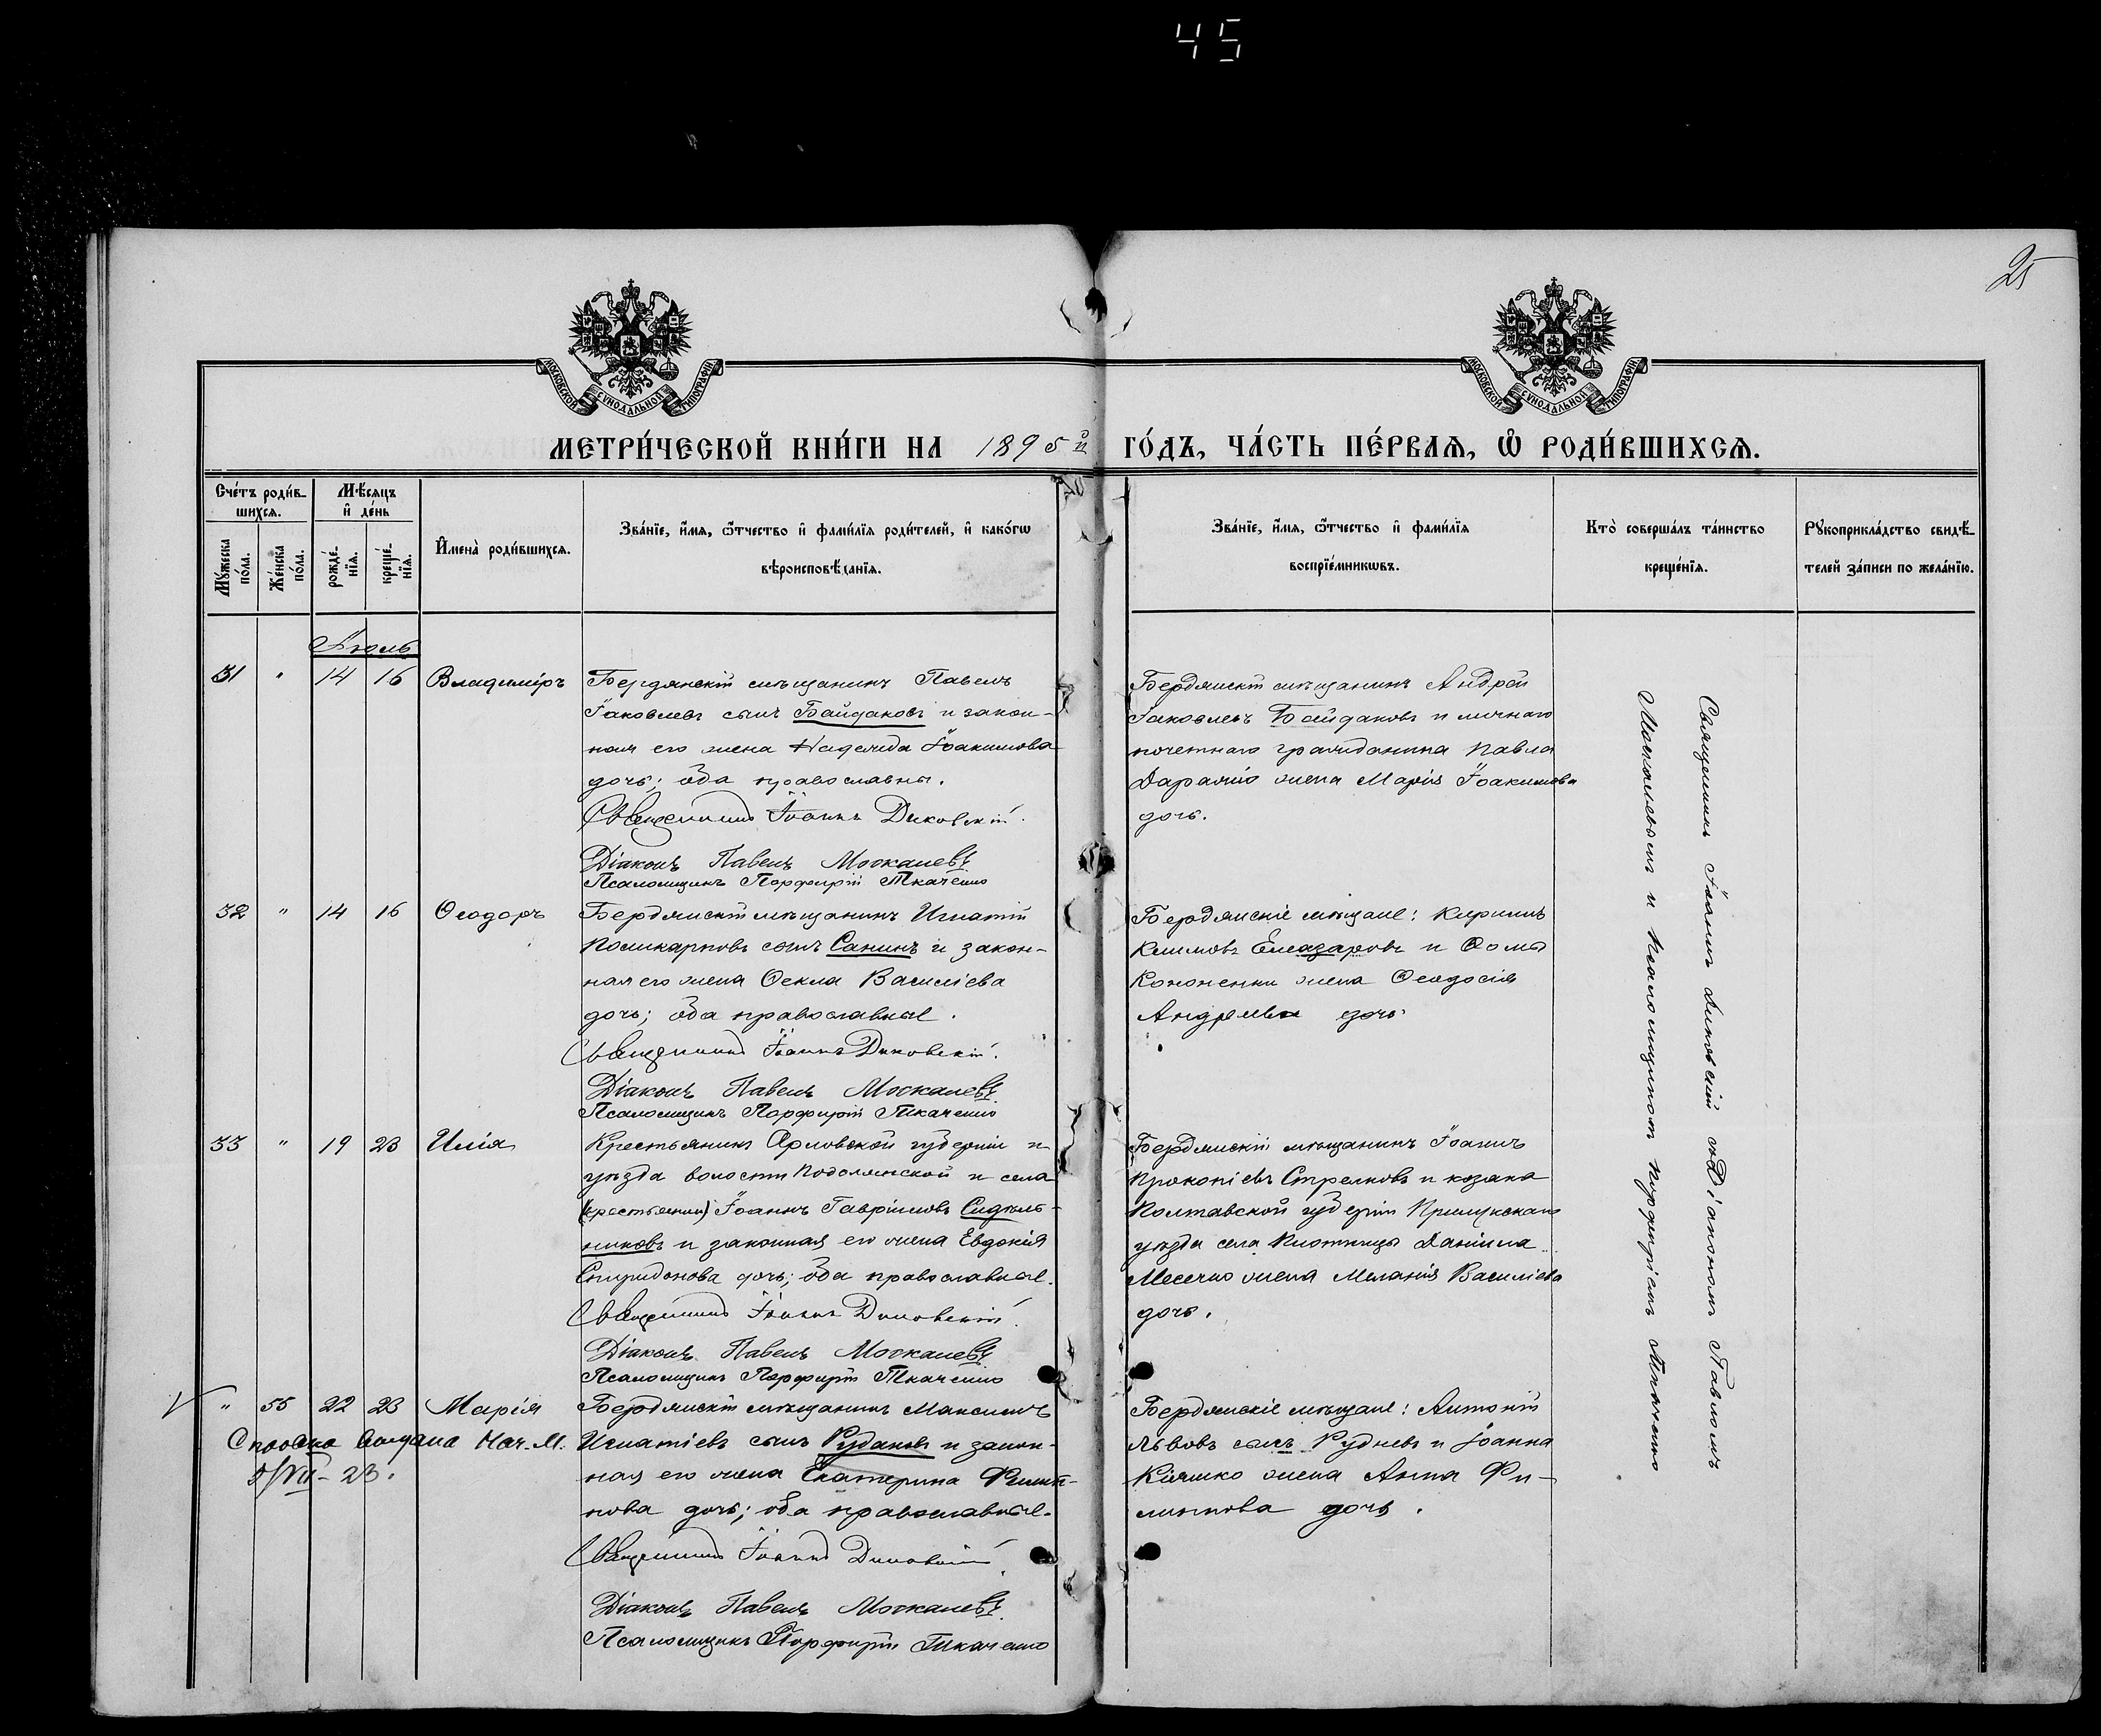 45
25
МОСКОВСКОЙ СѴНОДАЛЬНОЙ ТИПОГРАФІИ
МОСКОВСКОЙ СѴНОДАЛЬНОЙ ТИПОГРАФІИ
МЕТРИ́ЧЕСКОЙ КНИ́ГИ НА 1895й ГО́ДЪ, ЧА́СТЬ ПЕ́РВАѦ, Ѡ РОДИ́ВШИХСѦ.
Сче́тъ роди́в-
шихсѧ.
Мѣ́сѧцъ
и де́нь
Мꙋ́жеска по́ла.
Же́нска по́ла.
рожде́-
нїѧ.
креще́-
нїѧ.
И҆мена̀ роди́вшихсѧ.
Зва́нїе, и҆́мѧ, ѻ҆́тчество и҆ фами́лїѧ роди́телей, и҆ како́гѡ
вѣроисповѣ́данїѧ.
Зва́нїе, и҆́мѧ, ѻ҆́тчество и҆ фами́лїѧ
воспрїе́мникѡвъ.
Кто̀ соверша́лъ та́инство
креще́нїѧ.
Рꙋкоприкла́дство свидѣ́-
телей за́писи по жела́нїю.
Іюль
31 " 14 16 Владиміръ
Бердянскій мѣщанинъ Павелъ
Іаковлевъ сынъ Байдаковъ и закон-
ная его жена Надежда Іоакимова
дочь; оба православны.
Священникъ Іоаннъ Диковскій.
Діаконъ Павелъ Москалевъ
Псаломщикъ Порфирій Ткаченко
Бердянскій мѣщанинъ Андрей
Іаковлевъ Байдаковъ и личнаго
почетнаго гражданина Павла
жена Марія Іоакимова
дочь.
32 " 14 16 Ѳеодоръ
Бердянскій мѣщанинъ Игнатій
Поликарповъ сынъ Санинъ и закон-
ная его жена Ѳекла Василіева
дочь; оба православные.
Священникъ Іоаннъ Диковскій.
Діаконъ Павелъ Москалевъ.
Псаломщикъ Порфирій Ткаченко
Бердянскіе мѣщане: Кириллъ
Климовъ Елеазаровъ и Ѳомы
Кононенки жена Ѳеодосія
Андреева дочь.
33 " 19 23 Илія
Крестьянинъ Орловской губерніи и
уѣзда волости Подолянской и села
(крестьянин) Іоаннъ Гавріиловъ Сидѣль-
никовъ и законная его жена Евдокія
Спиридонова дочь; оба православные.
Священникъ Іоаннъ Диковскій.
Діаконъ Павелъ Москалевъ
Псаломщикъ Порфирій Ткаченко
Бердянскій мѣщанинъ Іоаннъ
Прокопіевъ Стрелковъ и козака
Полтавской губерніи Прилукскаго
уѣзда села Даніила
жена Меланія Василіева
дочь.
" 55 22 23 Марія
Справка выдана Нач. М.
5/VII - 23.
Бердянскій мѣщанинъ Максимъ
Игнатіевъ сынъ Рудаковъ и закон-
ная его жена Екатерина Филип-
пова дочь; оба православные.
Священникъ Іоаннъ Диковскій.
Діаконъ Павелъ Москалевъ.
Псаломщикъ Порфирій Ткаченко
Бердянскіе мѣщане: Антоній
Львовъ сынъ Рудневъ и Іоанна
Кіяшко жена Анна Фи-
липпова дочь.
Священникъ Іоаннъ Диковскій съ Діакономъ Павломъ
Москалевымъ и Псаломщикомъ Порфиріемъ Ткаченко